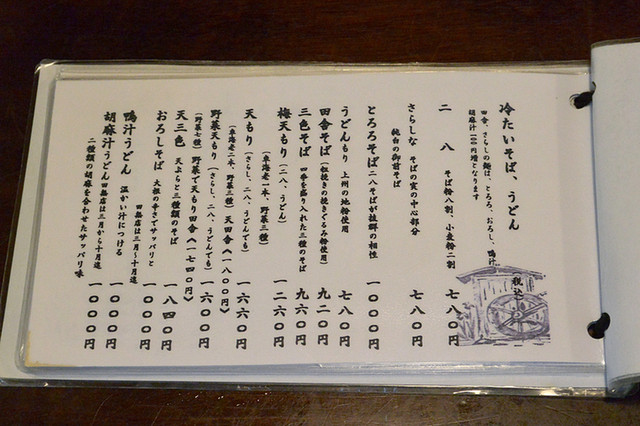 冷たいそば、うどん
田舎、さらしの麺は、とろろ、おろし、鴨汁、
胡麻汁100円増となります
税込
二八 そば粉八割、小麦粉二割 七八〇円
さらしな そばの実の中心部分 七八〇円
純白の御前そば
とろろそば 二八そばが抜群の相性 一〇〇〇円
うどんもり 上州の地粉使用 七八〇円
田舎そば (粗挽きの挽きぐるみ粉使用) 九二〇円
三色そば 四季を盛り入れた三種のそば 九六〇円
梅天もり (二八、うどん) 一二六〇円
(車海老一本、野菜三種)
天もり (さらし、二八、うどんでも) 一六六〇円
(車海老二本、野菜三種) 天田舎《一八〇〇円》
野菜天もり (さらし、二八、うどんでも) 一六〇〇円
(野菜七種) 野菜で天もり田舎《一七四〇円》
天三色 天ぷらと三種類のそば 一八四〇円
おろしそば 大根の辛さでサッパリと 一〇〇〇円
店は三月〜十月迄
鴨汁うどん 温かい汁につける 一〇〇〇円
店は三月から十月迄
胡麻汁うどん 一〇〇〇円
二種類の胡麻を合わせたサッパリ味